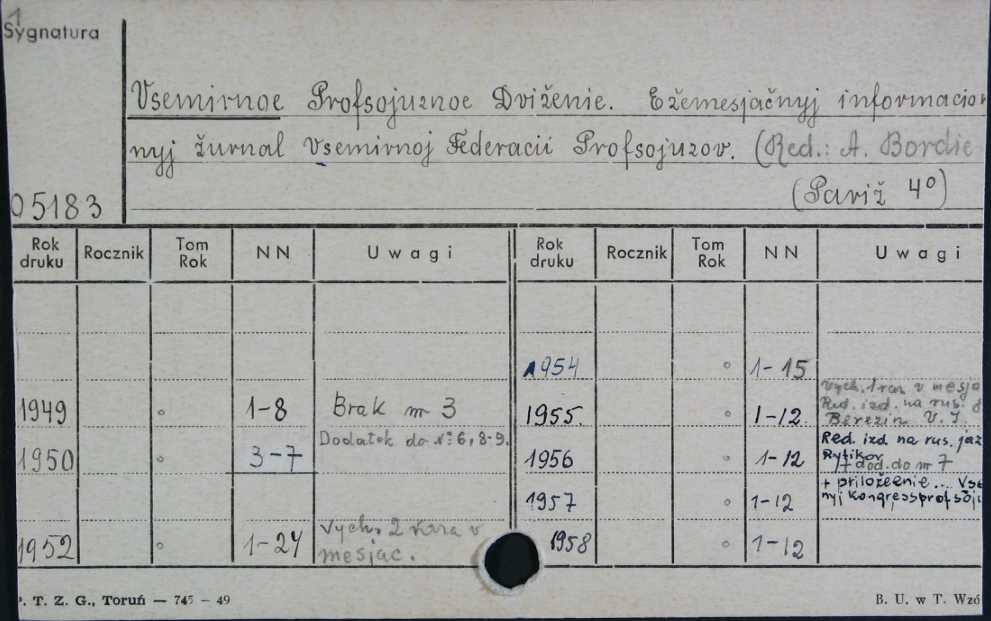 1
Sygnatura
Vsemirnoe Profsojuznoe Dviženie. Ežemesjačnyj informacion
nyj žurnal Vsemirnoj Federacii Profsojuzov. (Red.: A. Bordie
(Pariž 4º)
05183
Rok druku Rocznik Tom Rok NN Uwagi Rok druku Rocznik Tom Rok NN Uwagi
1954 ° 1-15
Vych. 1 raz v mesja
1949 ° 1-8 Brak nr 3 1955. ° 1-12. Red. izd. na rus. ja
Berezin V. I.
Dodatek do Nº: 6, 8-9.
1950 ° 3-7 1956 ° 1-12 Red. izd na rus. jaz
Rytikov
+ dod. do nr 7
1957 ° 1-12 + priložeenie... Vse
nyj kongress profsoju
1952 ° 1-24 Vych. 2 raza v
mesjac.
1958 ° 1-12
P. T. Z. G., Toruń — 745 — 49 B. U. w T. Wzó